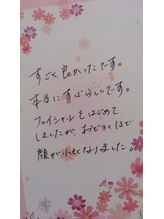 すごく良かったです。
本当にすばらしいです。
フェイシャルをはじめて
しましたが、おどろくほど
顔が小さくなりました。